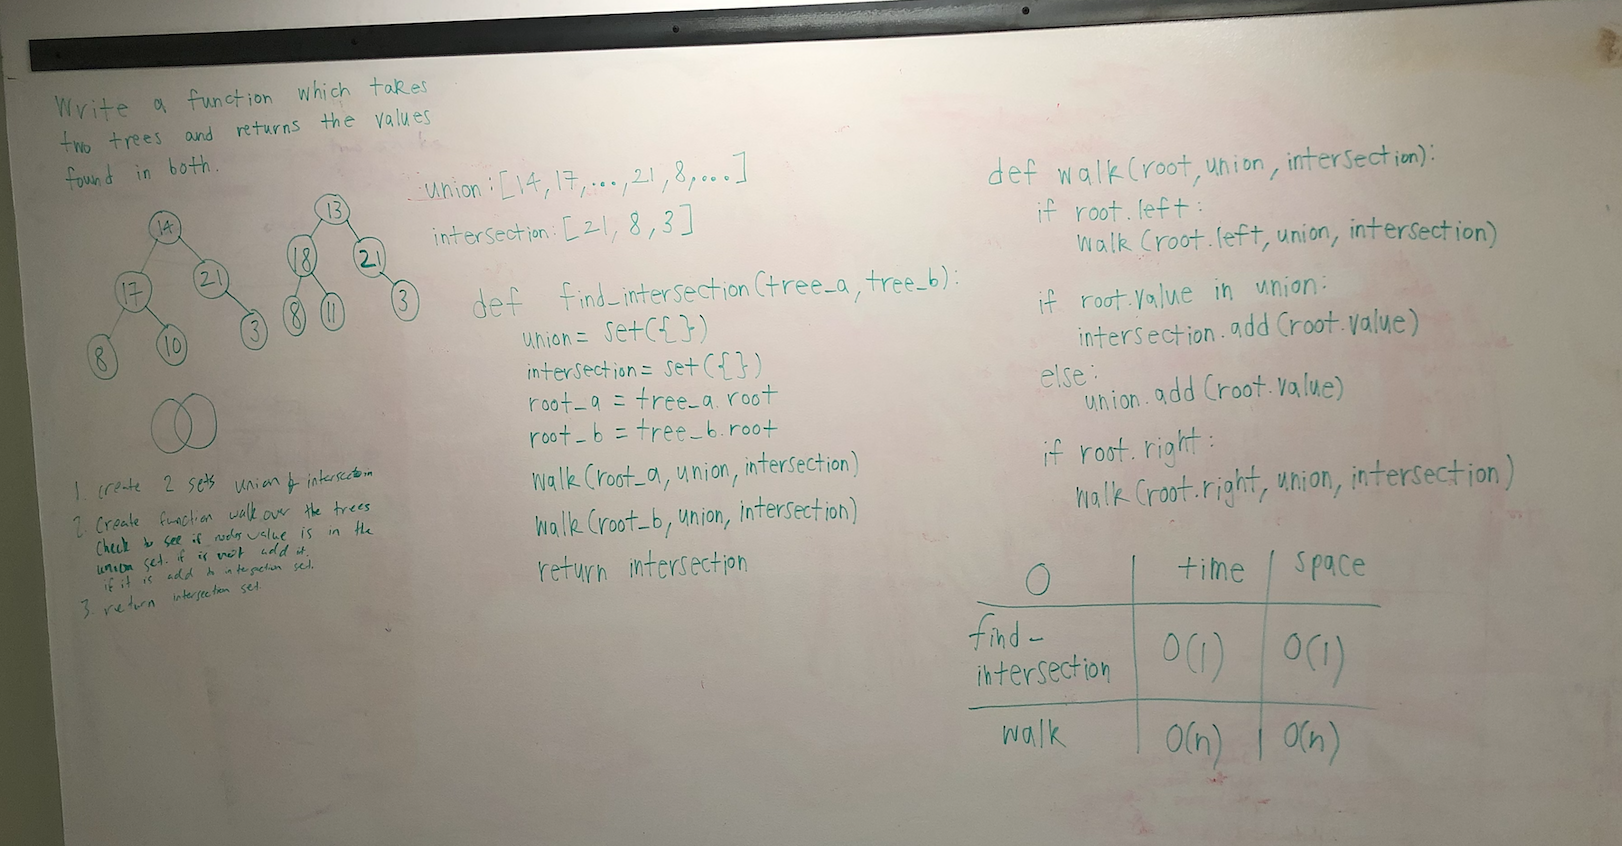 Write a function which takes
two trees and returns the values
found in both.
14
17
21
8
10
3
13
18
21
8
11
3
1. create 2 sets union & intersection
2. Create function walk over the trees
Check to see if nodes value is in the
union set. if is not add it.
if it is add to intersection set.
3. return intersection set.
union: [14, 17, ..., 21, 8, ....]
intersection: [21, 8, 3]
def find_intersection(tree_a, tree_b):
union = set({})
intersection = set({})
root_a = tree_a.root
root_b = tree_b.root
walk(root_a, union, intersection)
walk(root_b, union, intersection)
return intersection
def walk(root, union, intersection):
if root.left:
walk(root.left, union, intersection)
if root.value in union:
intersection.add(root.value)
else:
union.add(root.value)
if root.right:
walk(root.right, union, intersection)
O time space
find-
intersection O(1) O(1)
walk O(n) O(n)